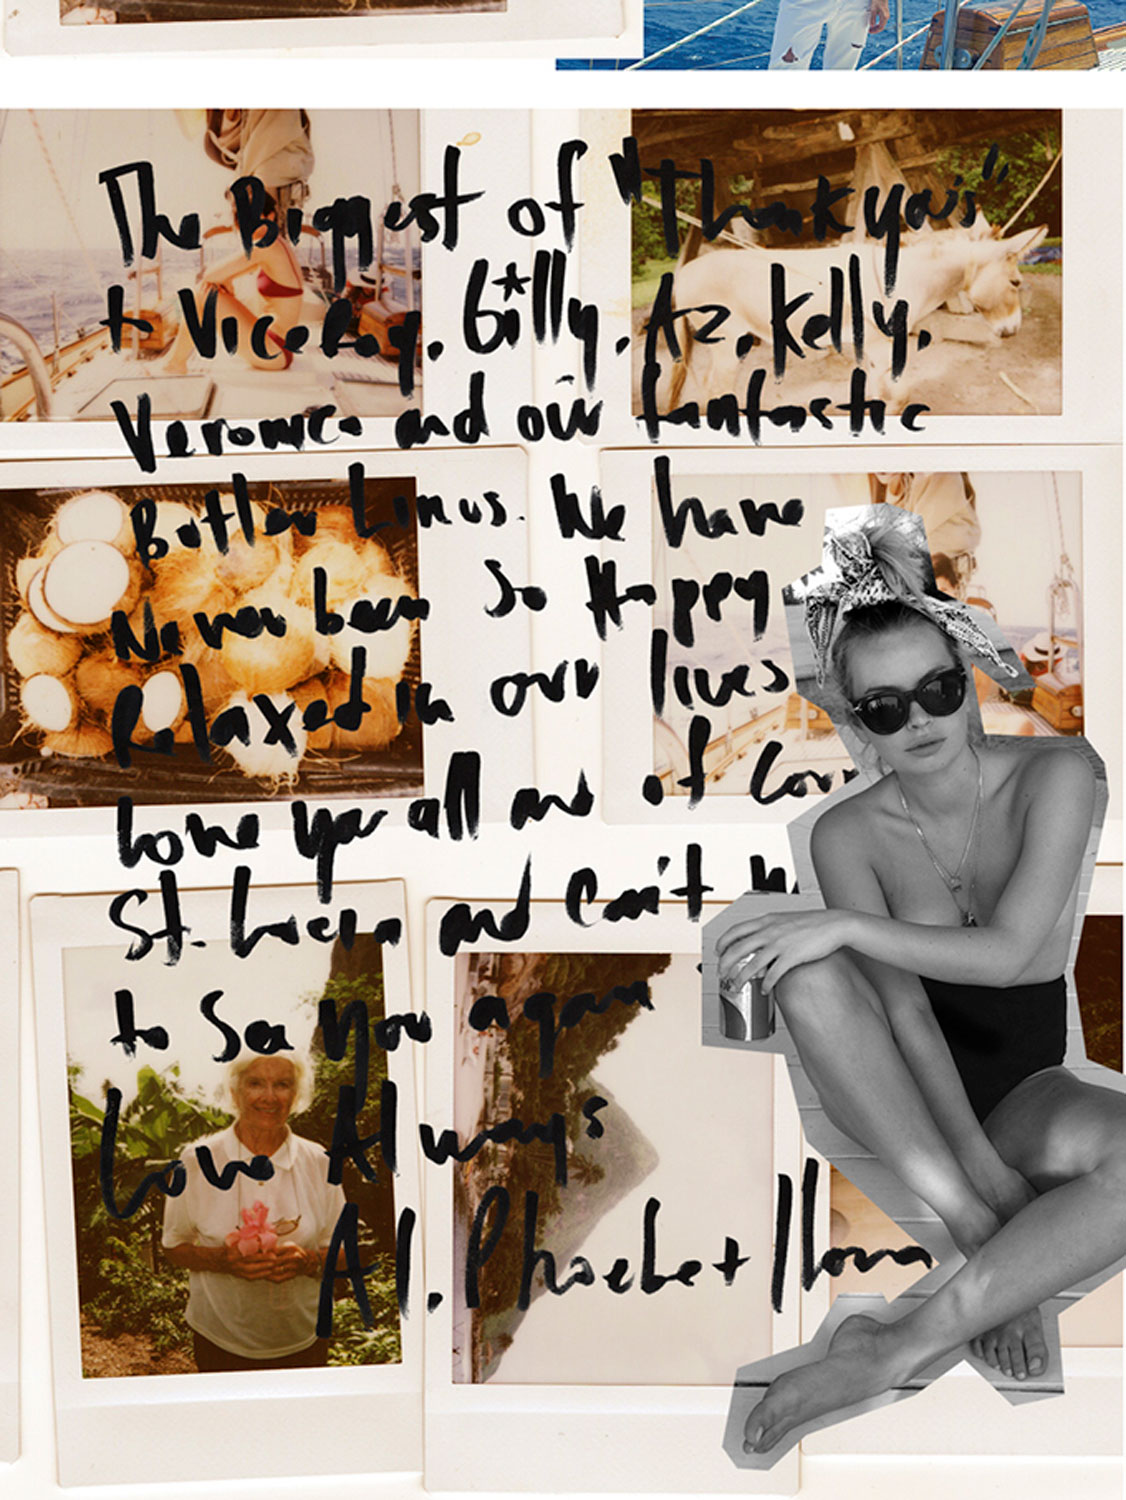 The Biggest of "Thankyou's"
to Viceroy, Gilly, Az, Kelly,
Veronica and our fantastic
Butler Linus. We have
Never been So Happy
Relaxed in our lives
Love you all and of
St. Lucia and can't
to See you again
Love Always
Al, Phoebe + Ilona